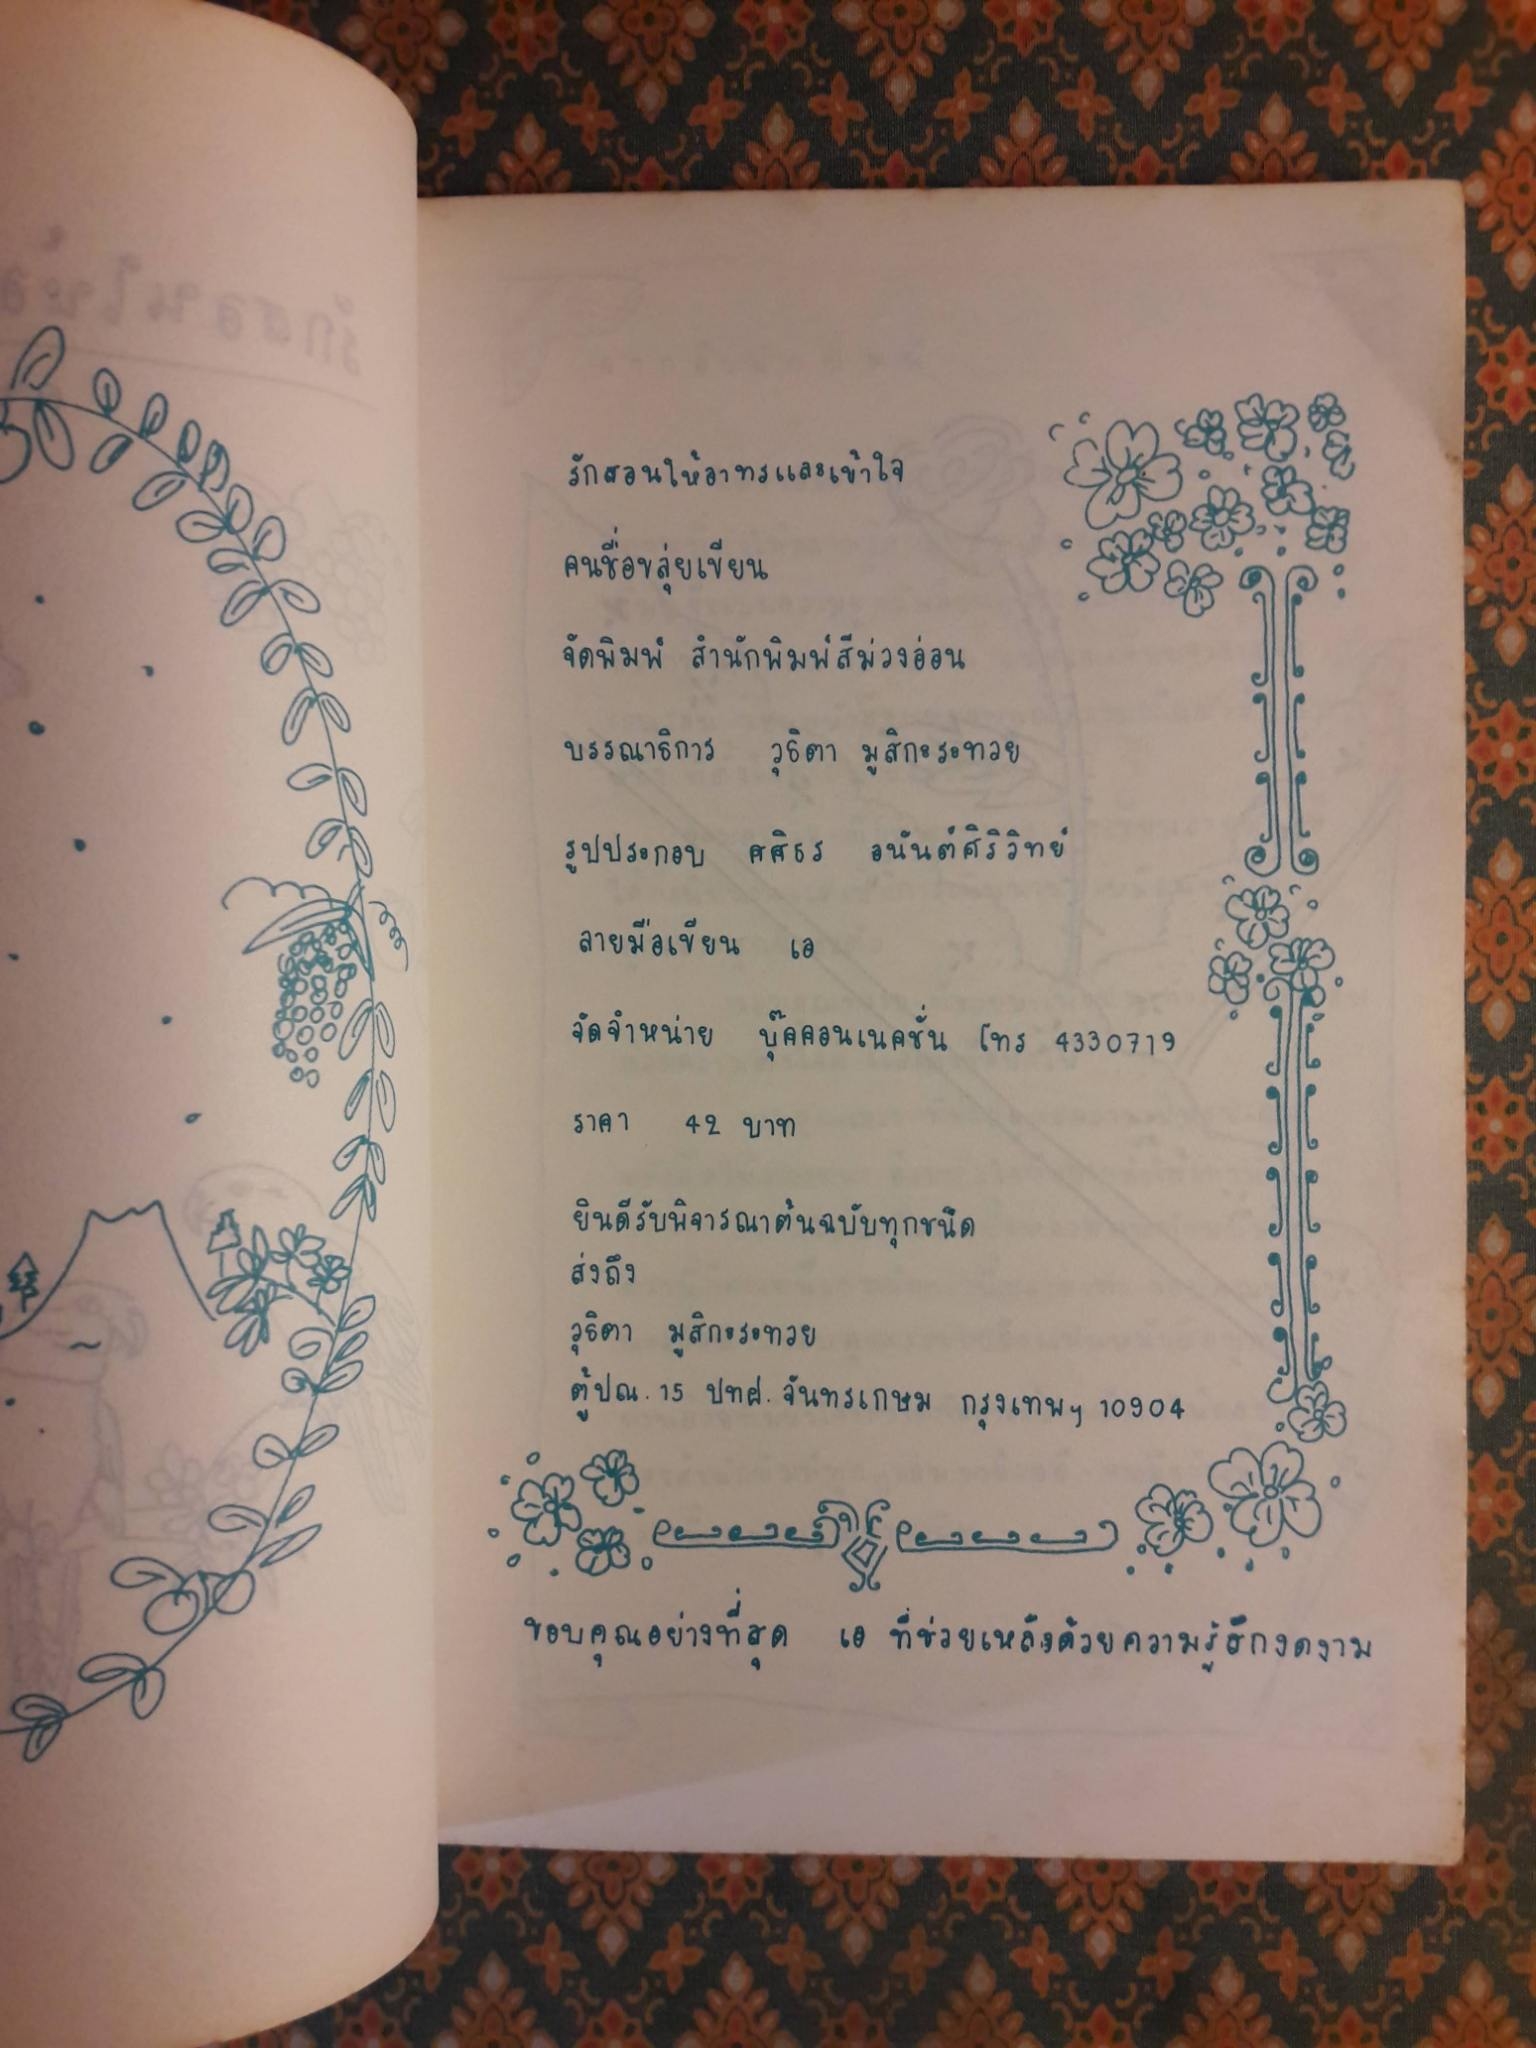 รักสอนให้อาทรและเข้าใจ
คนชื่อขลุ่ยเขียน
จัดพิมพ์ สำนักพิมพ์สีม่วงอ่อน
บรรณาธิการ วุธิตา มูสิกะระทวย
รูปประกอบ ศศิธร อนันต์ศิริวิทย์
ลายมือเขียน เอ
จัดจำหน่าย บุ๊คคอนเนคชั่น โทร 4330719
ราคา 42 บาท
ยินดีรับพิจารณาต้นฉบับทุกชนิด
ส่งถึง
วุธิตา มูสิกะระทวย
ตู้ปณ. 15 ปทฝ. จันทรเกษม กรุงเทพฯ 10904
ขอบคุณอย่างที่สุด เอ ที่ช่วยเหลือด้วยความรู้สึกงดงาม